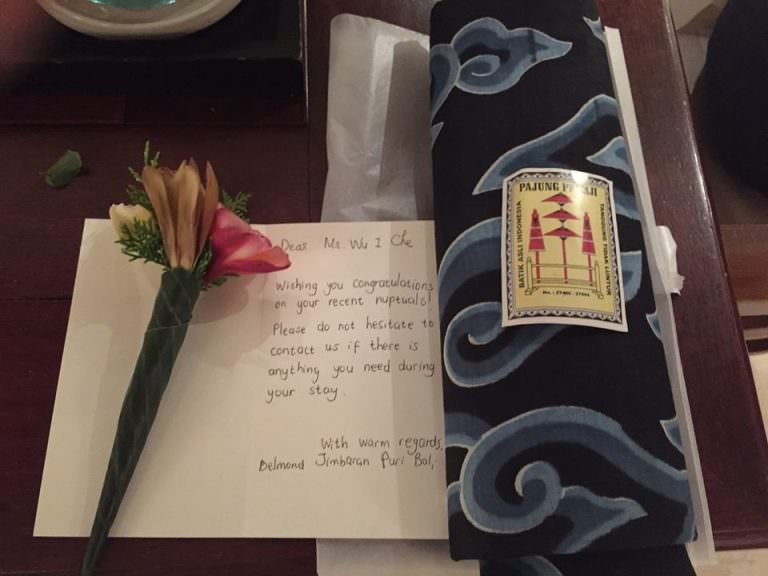 Dear Ms. Wu I Che
Wishing you congratulations
on your recent nuptuals!
Please do not hesitate to
contact us if there is
anything you need during
your stay.
With warm regards,
Belmond Jimbaran Puri Bali
PAJUNG
BATIK ASLI INDONESIA
TANGGUNG TIDAK LUNTUR